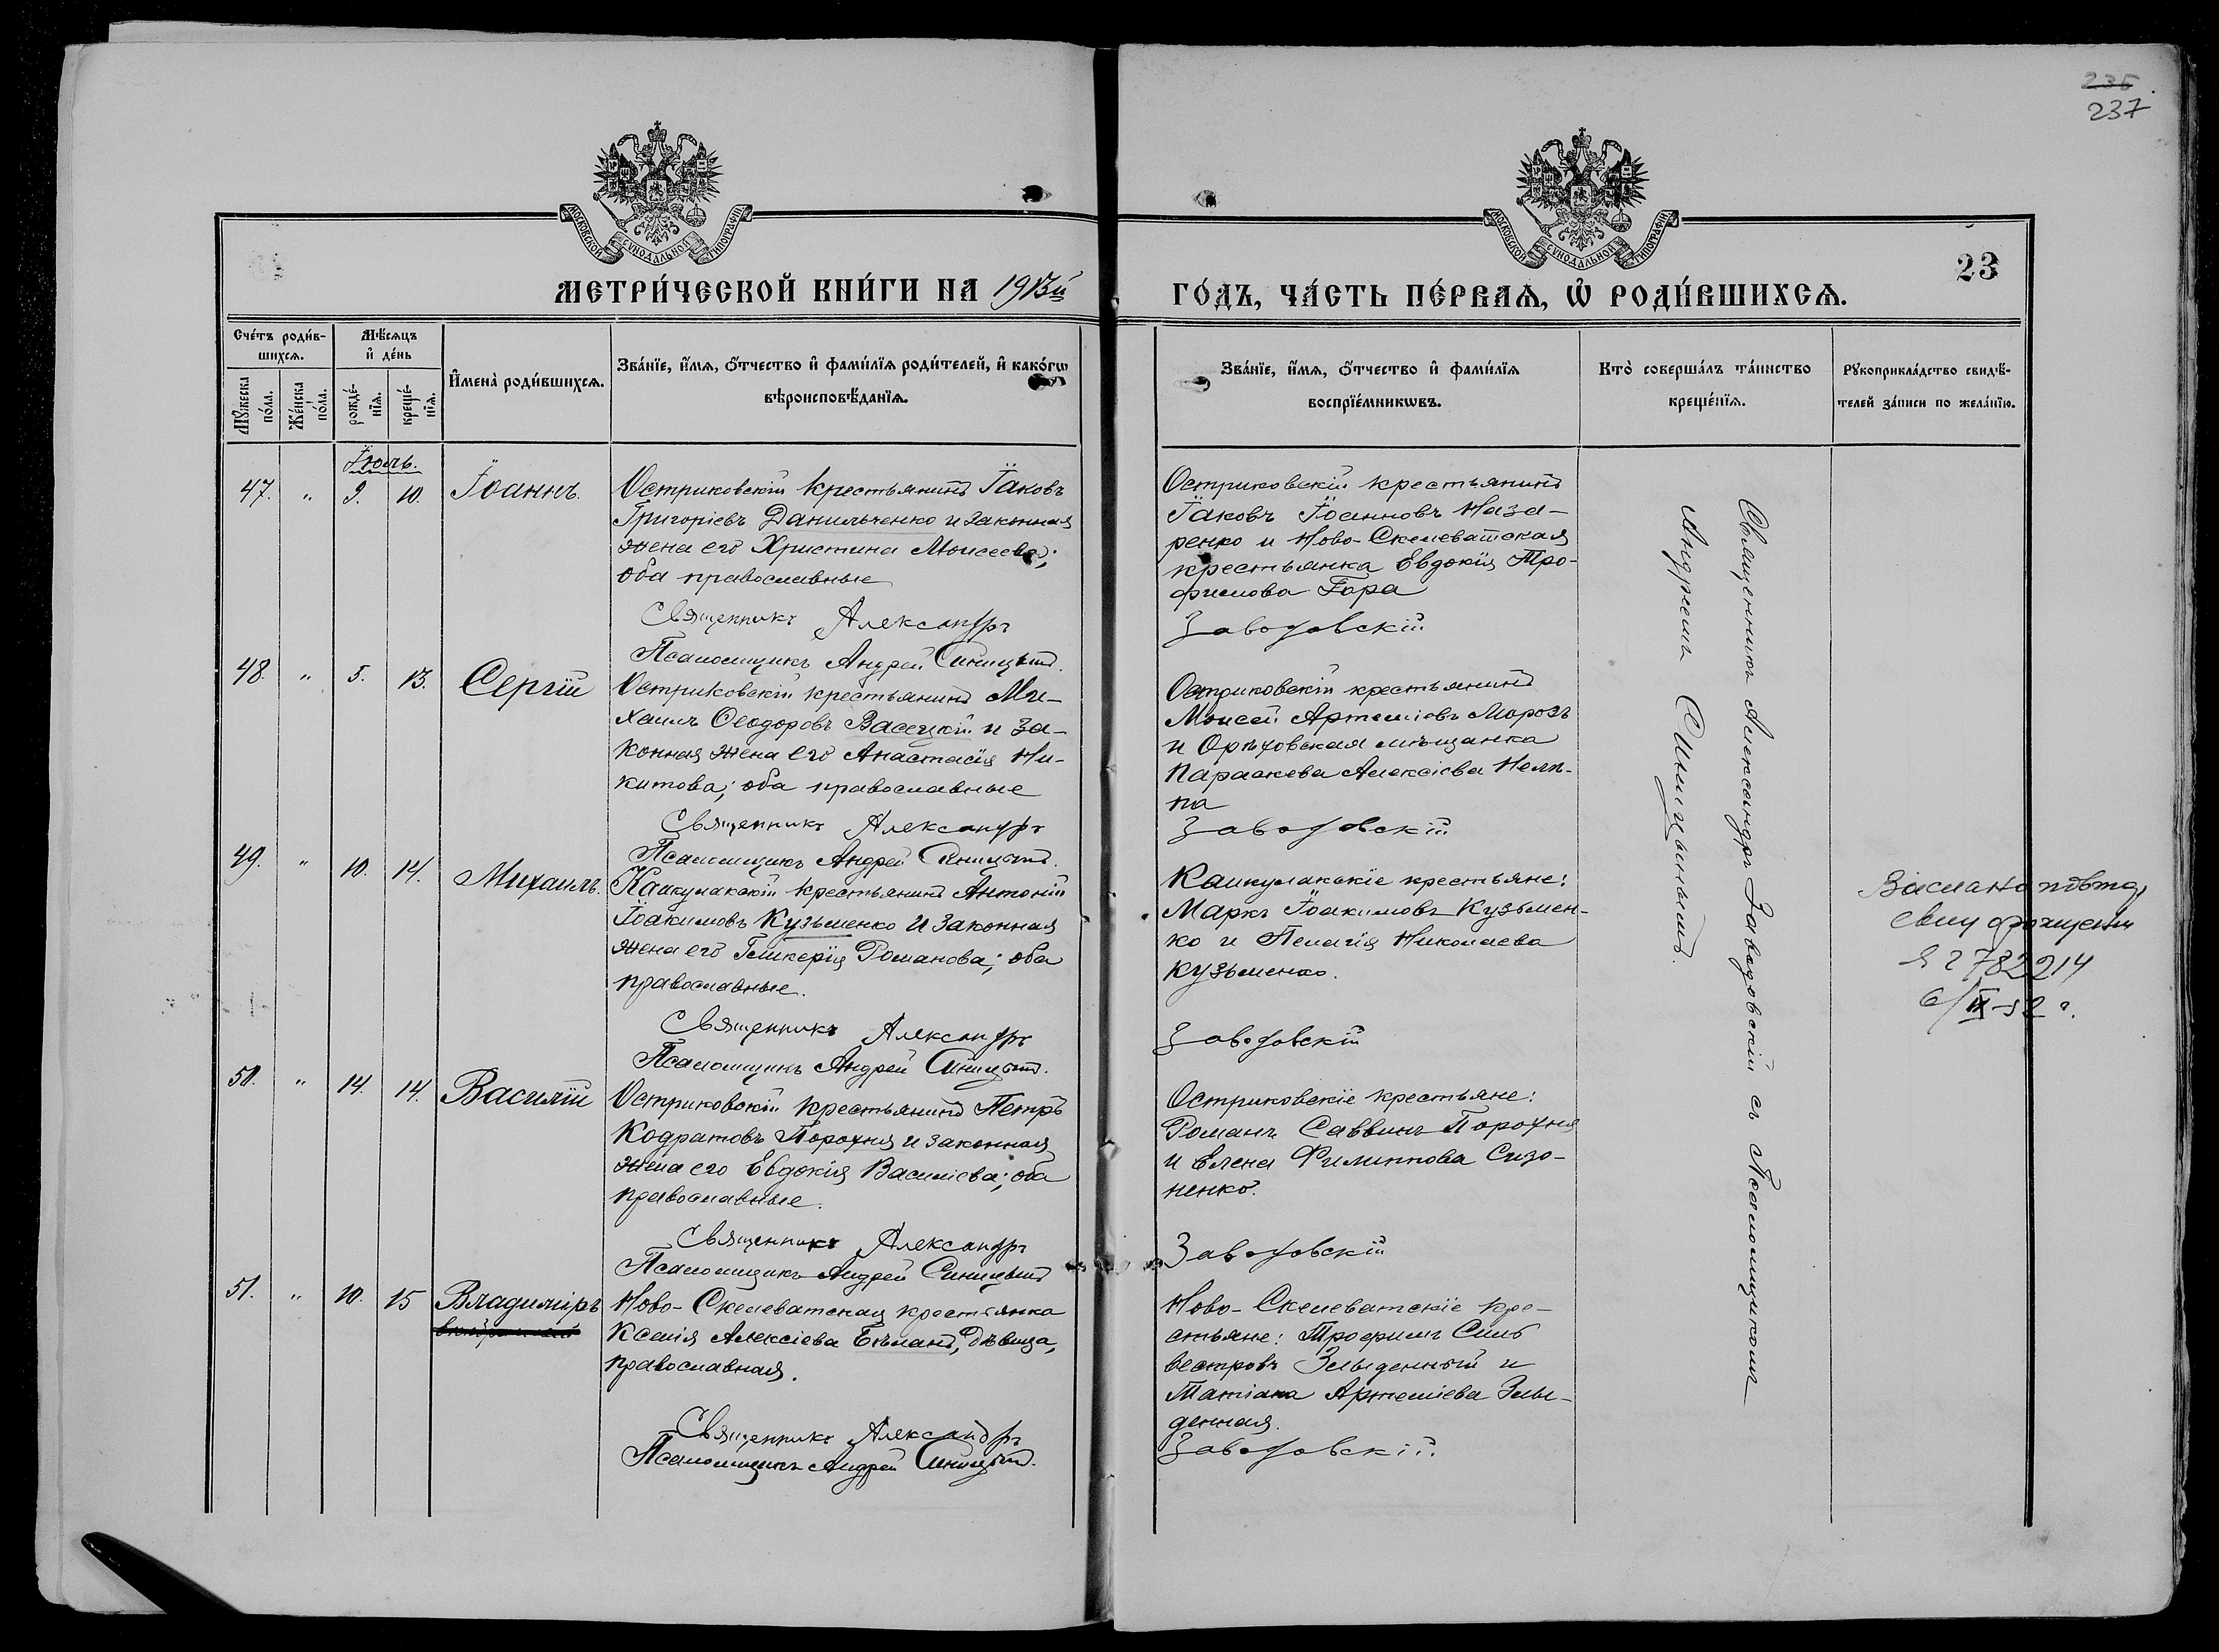 235
237
МОСКОВСКОЙ СУНОДАЛЬНОЙ ТИПОГРАФІИ
МОСКОВСКОЙ СУНОДАЛЬНОЙ ТИПОГРАФІИ
23
МЕТРИ́ЧЕСКОЙ КНИ́ГИ НА 1913й ГО́ДЪ, ЧА́СТЬ ПЕ́РВАѦ, Ѡ РОДИ́ВШИХСѦ.
Сче́тъ роди́в-
шихсѧ.
Мꙋ́жеска
по́ла.
Же́нска
по́ла.
Мѣ́сѧцъ
и҆ де́нь
рожде́-
нїѧ.
креще́-
нїѧ.
И҆мена̀ роди́вшихсѧ.
Зва́нїе, и҆́мѧ, ѻ҆́тчество и҆ фами́лїѧ роди́телей, и҆ како́гѡ
вѣроисповѣ́данїѧ.
Зва́нїе, и҆́мѧ, ѻ҆́тчество и҆ фами́лїѧ
воспрїе́мникѡвъ.
Кто̀ соверша́лъ та́инство
креще́нїѧ.
Рꙋкоприкла́дство свидѣ́-
телей за́писи по жела́нїю.
Іюль.
47. " 9. 10. Іоаннъ.
Остриковскій крестьянинъ Іаковъ
Григоріевъ Данильченко и законная
жена его Христина Моисеева;
оба православные
Священникъ Александръ
Псаломщикъ Андрей Синицынъ.
Остриковскій крестьянинъ
Іаковъ Іоанновъ Наза-
ренко и Ново-Скелеватская
крестьянка Евдокія Тро-
фимова Гора
Заводовскій
48. " 5. 13. Сергій
Остриковскій крестьянинъ Ми-
хаилъ Ѳеодоровъ Васецкій и за-
конная жена его Анастасія Ни-
китова; оба православные
Священникъ Александръ
Псаломщикъ Андрей Синицынъ.
Остриковскій крестьянинъ
Моисей Артеміевъ Морозъ
и Орѣховская мѣщанка
Параскева Алексіева Нели-
па
Заводовскій
49. " 10. 14. Михаилъ.
Канкулакскій крестьянинъ Антоній
Іоакимовъ Кузьменко и законная
жена его Гликерія Романова; оба
православные.
Священникъ Александръ
Псаломщикъ Андрей Синицынъ.
Канкулакскіе крестьяне:
Маркъ Іоакимовъ Кузьмен-
ко и Пелагія Николаева
Кузьменко.
Заводовскій
50. " 14. 14. Василій
Остриковскій крестьянинъ Петръ
Кодратовъ Порохня и законная
жена его Евдокія Василіева; оба
православные.
Священникъ Александръ
Псаломщикъ Андрей Синицынъ
Остриковскіе крестьяне:
Романъ Саввинъ Порохня
и Елена Филиппова Сизо-
ненко.
Заводовскій
51. " 10. 15 Владиміръ
Ново-Скелеватская крестьянка
Ксенія Алексіева Бѣланъ, дѣвица,
православная.
Священникъ Александръ
Псаломщикъ Андрей Синицынъ.
Ново-Скелеватскіе кре-
стьяне: Трофимъ Силь
вестровъ Зъыденный и
Татіана Артеміева Зъы-
денная.
Заводовскій
Священникъ Александръ Заводовскій съ Псаломщикомъ
Андреемъ Синицынымъ.
782214
6/IX-52 г.